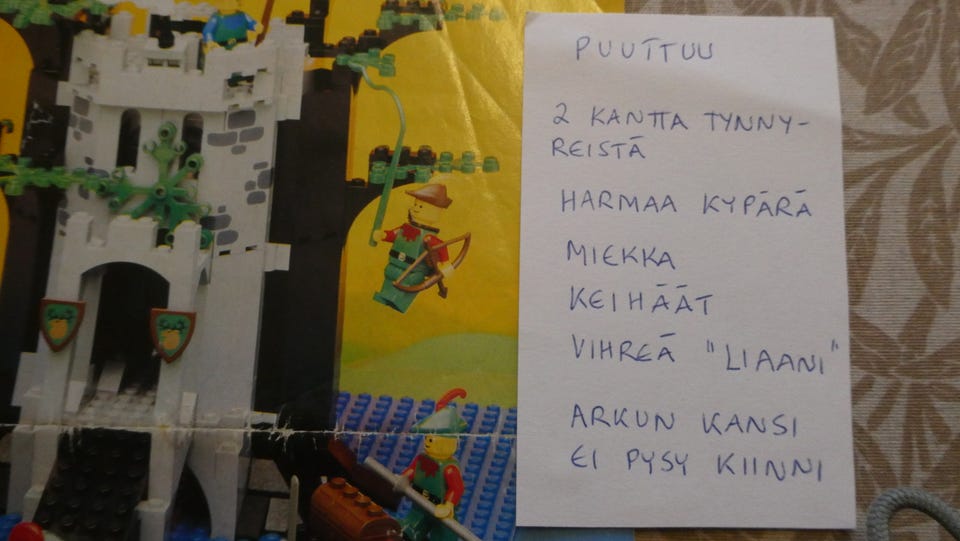 PUUTTUU
2 KANTTA TYNNY-
REISTÄ
HARMAA KYPÄRÄ
MIEKKA
KEIHÄÄT
VIHREÄ "LIAANI"
ARKUN KANSI
EI PYSY KIINNI